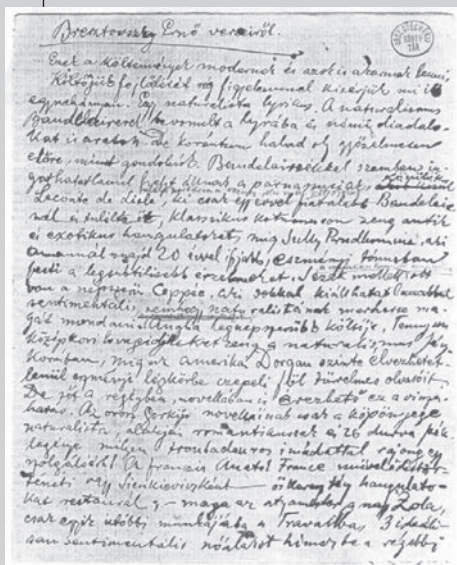 Bresztovszky Ernő verseiről.
ORSZ. SZÉCHÉNYI KÖNYVTÁR
Ezek a költemények modernek és azok is akarnak lenni,
Költőjük fejlődését rég figyelemmel kísérjük mi is
egynehányan. Egy naturalista lyrikus. A naturalizmus
Baudelaire-rel bevonult a lyrába és némi diadalo-
kat is aratott. De korántsem halad oly győzelmesen
előre, mint gondolnók. Baudelaireékkel szemben in-
gathatatlanul állnak a parnassienek,
Leconte de Lisle, ki csak evvel fiatalabb Baudelaire
nál és túlélte őt, klasszikus kothurnuson zeng antik
és exotikus hangulatokat, míg Sully Prudhomme, aki
amannál majd 20 évvel ifjabb, eszményi tónusban
festi a legsubtilisebb érzelmeket. Ezek mellett ott
van a népszerű Coppée, aki sokkal
sentimentális, naturalistának merhesse ma-
gát mondani. Anglia legnépszerűbb költője, Tennyson
középkori lovagidilleket zeng a naturalismus fény-
korában, míg az amerikai szinte élvezhetet-
lenül eszményi légkörbe czepeli föl türelmes olvasóit.
De jót a regényben, novellában is érezhető ez a vissza-
hatás. Az orosz Gorkij novelláinak csak a köpönyege
naturalista, alakjai romantikusak és 26 durva pék-
legénye mélyen troubadouros imádattal rajong egy
szolgálóért. A francia Anatol France
történeti vagy Sienkievicsként — őskeresztény hangulato-
kat restaurál; — maga az atyamester, a nagy Zola,
csak egyik utóbbi munkájába a Travailba, 3 ideáli-
san sentimentális nőalakot hímez be a régebbi